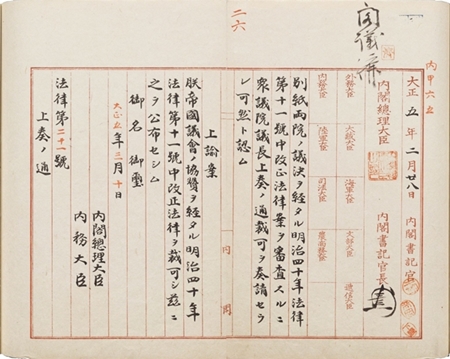 二六
閣議済
内甲六五
大正五年二月廿八日
内閣書記官
内閣總理大臣
内閣書記官長
外務大臣
大蔵大臣
海軍大臣
文部大臣
逓信大臣
内務大臣
陸軍大臣
司法大臣
農商務大臣
別紙両院ノ議決ヲ経タル明治四十年法律
第十一號中改正法律案ヲ審査スルニ
衆議院議長上奏ノ通裁可ヲ奏請セラ
レ可然ト認ム
内閣
上諭案
朕帝國議會ノ協賛ヲ経タル明治四十年
法律第十一號中改正法律ヲ裁可シ茲ニ
之ヲ公布セシム
御名御璽
大正五年三月十日
内閣總理大臣
内務大臣
法律第二十一號
上奏ノ通